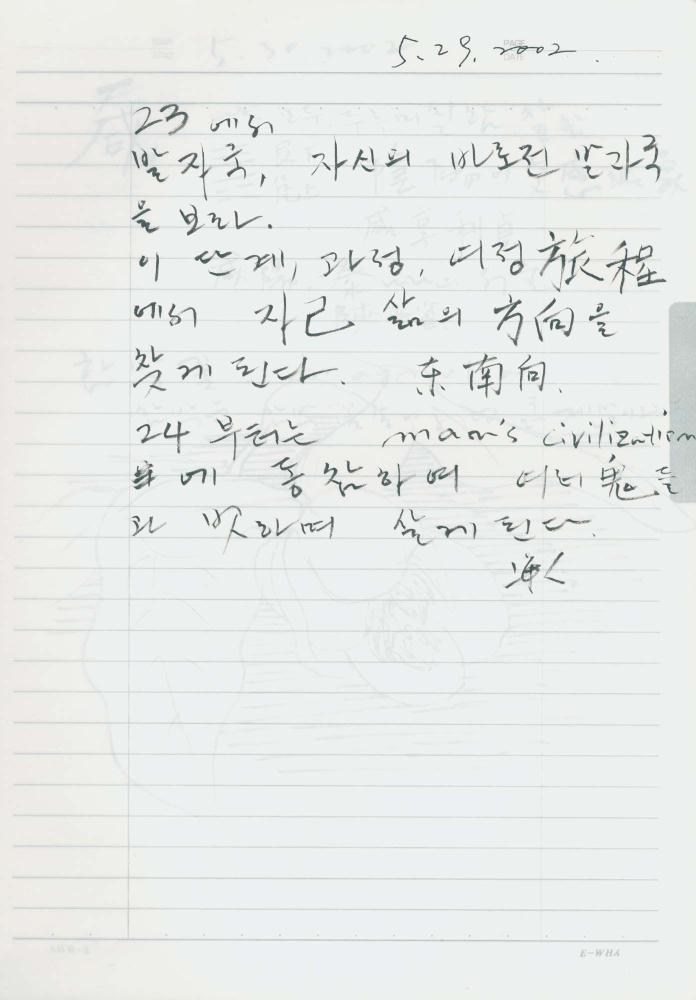 5. 29. 2002.
PAGE
DATE
23 에서
발자국, 자신의 바로전 발자국
을 보라.
이 단계, 과정, 여정 旅程
에서 자己 삶의 方向을
찾게 된다. 东南向.
24 부터는 man's civilization
에 동참하며 여러 鬼들
과 벗하며 살게 된다.
海人
E-WHA